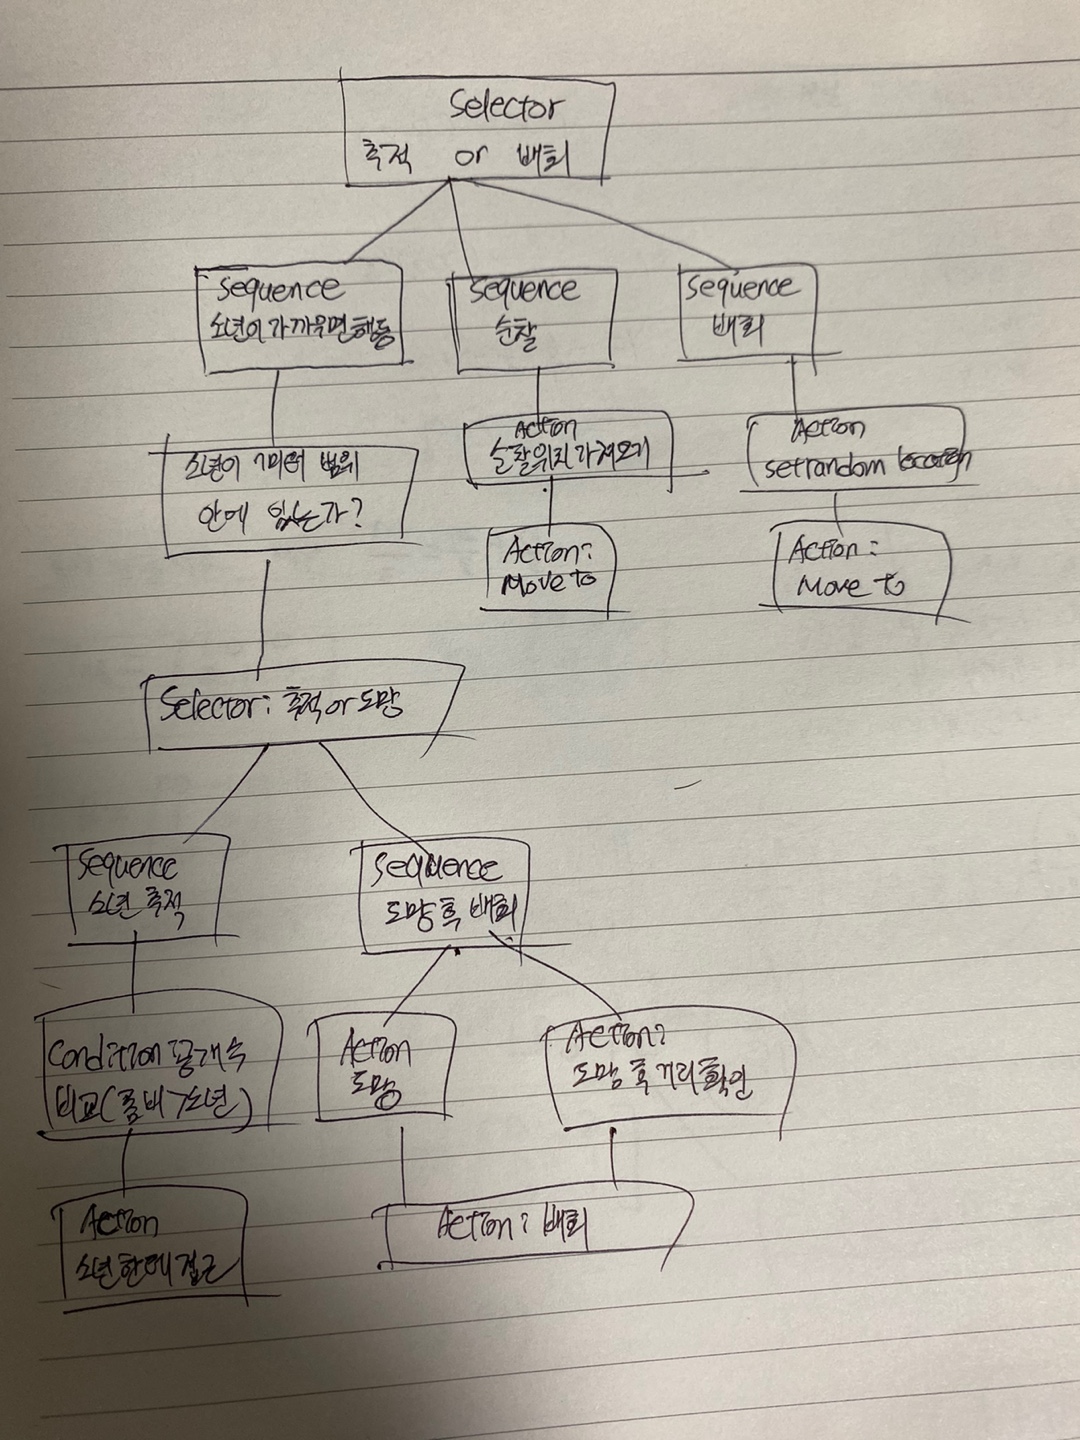 Selector
추적 or 배회
Sequence
소년이 가까우면 행동
Sequence
순찰
Sequence
배회
소년이 7미터 범위
안에 있는가?
Action
순찰위치 가져오기
Action
setrandom location
Action:
Move to
Action:
Move to
Selector: 추적 or 도망
Sequence
소년 추적
Sequence
도망 후 배회
Condition 공개수
비교(좀비>소년)
Action
도망
Action:
도망 후 거리 확인
Action
소년한테 접근
Action: 배회